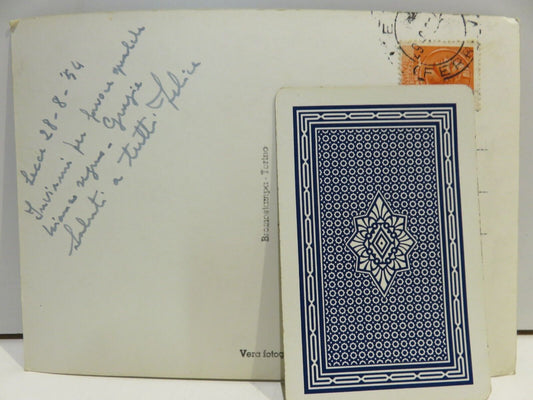 Lecce 28-8-'54
Inviarmi per favore qualche
bianco segno - Grazie
Saluti a tutti Felice
Bromostampa - Torino
Vera fotog